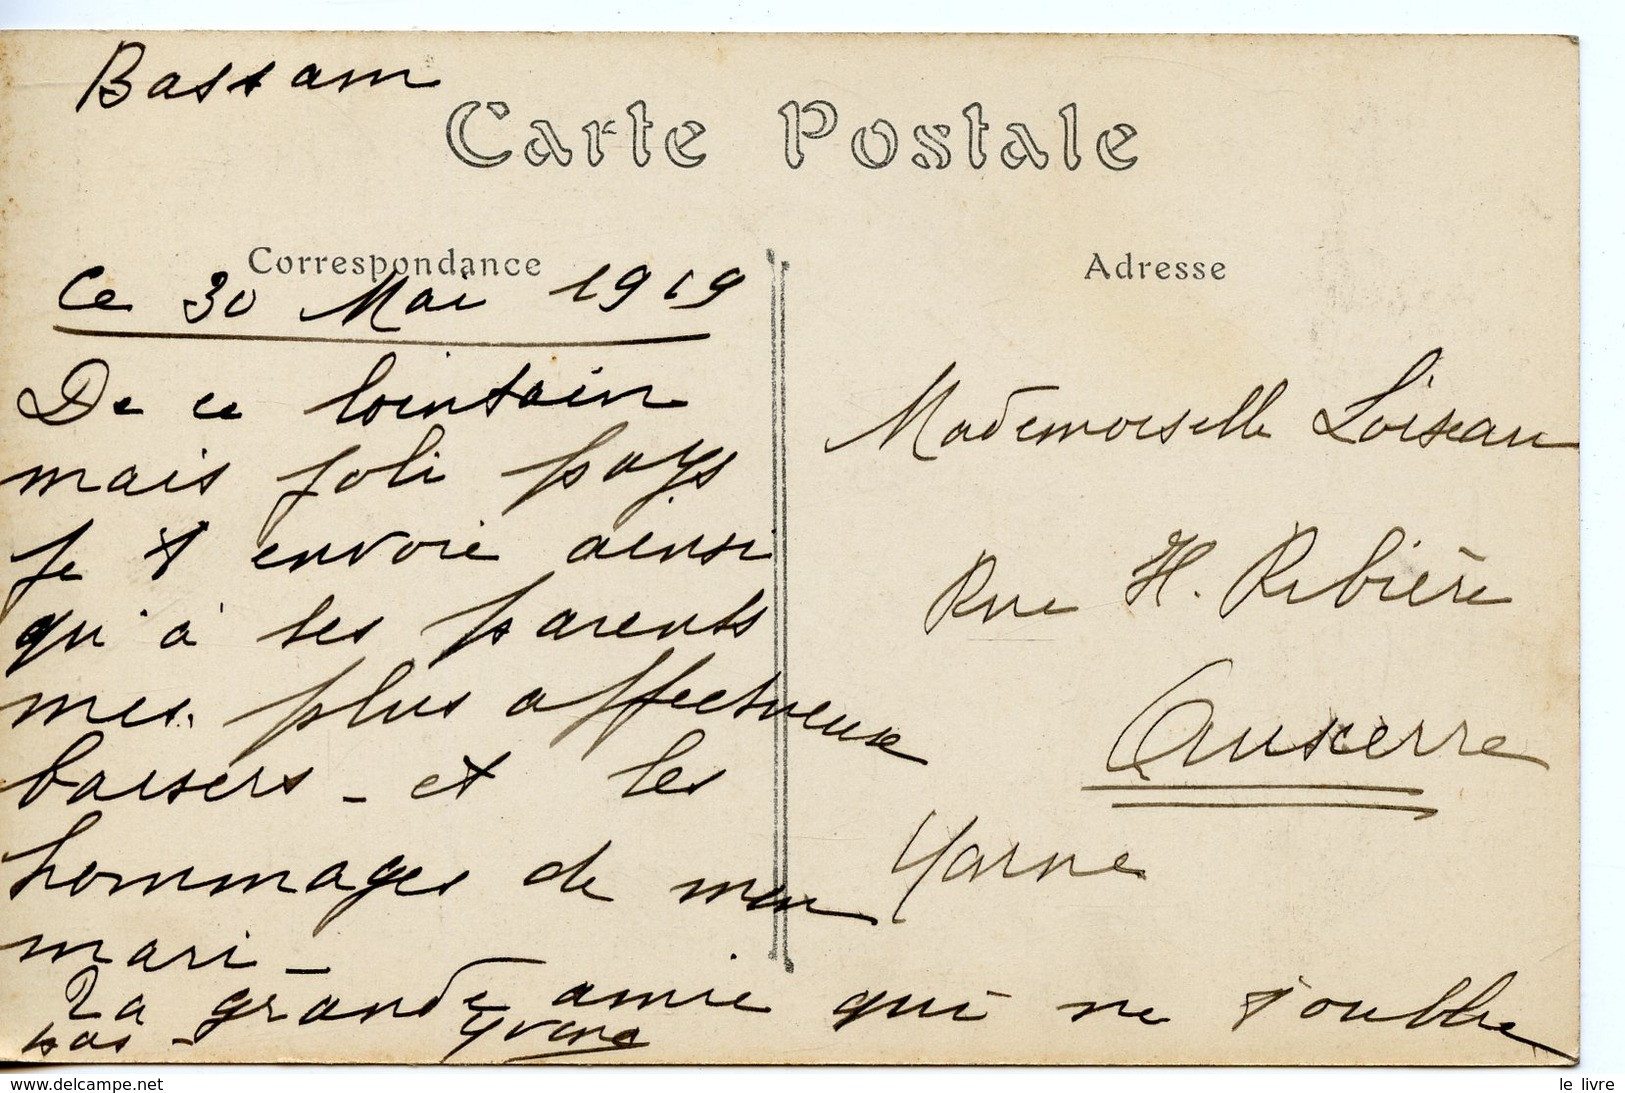 Bassam
Carte Postale
Correspondance
Adresse
Ce 30 Mai 1919
De ce lointain
mais joli pays
je t envoie ainsi
qu'à tes parents
mes plus affectueux
baisers - et les
hommages de mon
mari -
Ta grande amie qui ne t'oublie
pas - Yvone
Mademoiselle Loiseau
Rue H. Ribière
Auxerre
Yonne
www.delcampe.net
le livre